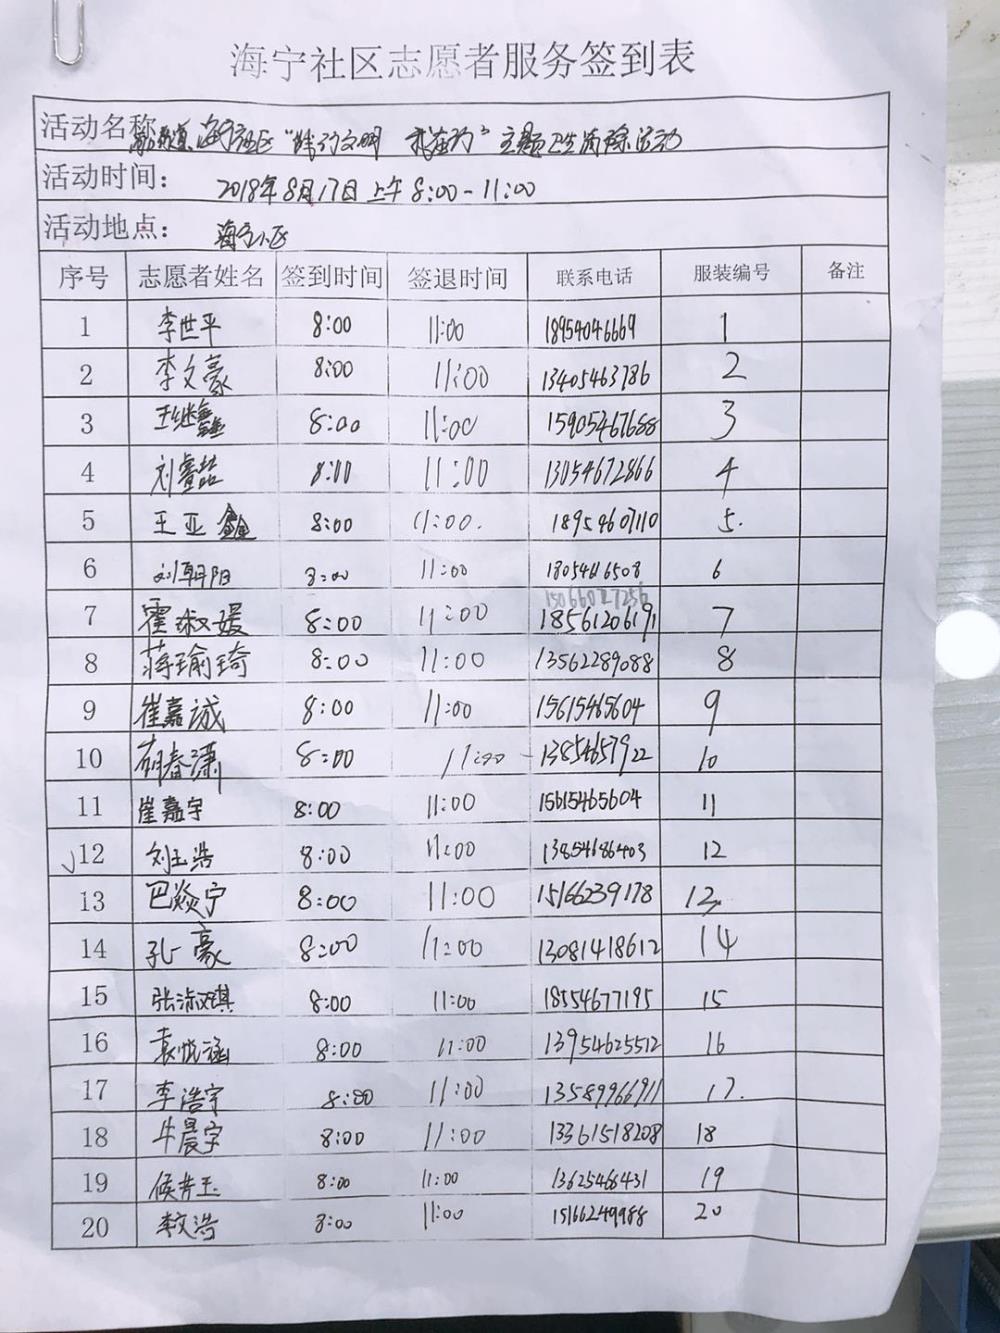 海宁社区志愿者服务签到表
活动名称 海宁社区“践行文明 我在行”主题卫生清除活动
活动时间： 2018年8月17日上午8:00-11:00
活动地点： 海宁小区
序号 志愿者姓名 签到时间 签退时间 联系电话 服装编号 备注
1 李世平 8:00 11:00 18954046669 1
2 李文豪 8:00 11:00 13405463786 2
3 王继鑫 8:00 11:00 15905467688 3
4 刘睿喆 8:00 11:00 13054672866 4
5 王亚鑫 8:00 11:00. 18954607110 5.
6 刘朝阳 8:00 11:00 18054616508 6
7 霍淑媛 8:00 11:00 18561206191 7
8 蒋瑜琦 8:00 11:00 13562289088 8
9 崔嘉诚 8:00 11:00 15615465604 9
10 胡春潇 8:00 11:00 13854657922 10
11 崔嘉宇 8:00 11:00 15615465604 11
12 刘玉浩 8:00 11:00 13854686403 12
13 巴焱宁 8:00 11:00 15166239178 13
14 孔豪 8:00 11:00 13081418612 14
15 张淑琪 8:00 11:00 18554677195 15
16 袁悦涵 8:00 11:00 13954625512 16
17 李浩宇 8:00 11:00 13589966911 17.
18 牛晨宇 8:00 11:00 13361518208 18
19 侯青玉 8:00 11:00 13625466431 19
20 李文浩 8:00 11:00 15166249988 20